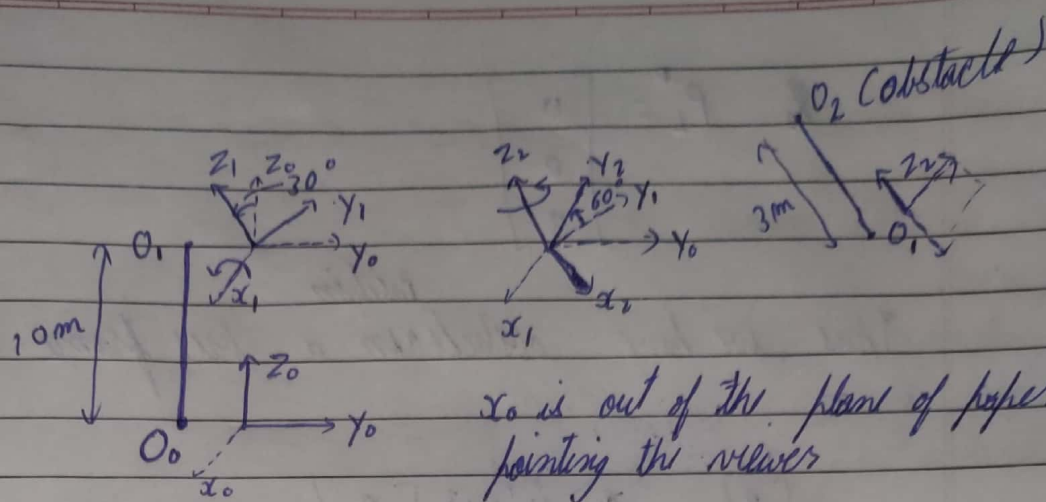 O₂ (obstacle)
Z₁ Z₀ 30° Y₁
Y₀
x₁
O₁
10m
Z₀
Y₀
O₀
x₀
Z₂ Y₂
60° Y₁
Y₀
x₁ x₂
3m
Z₂
O₁
x₀ is out of the plane of pape
pointing the viewer